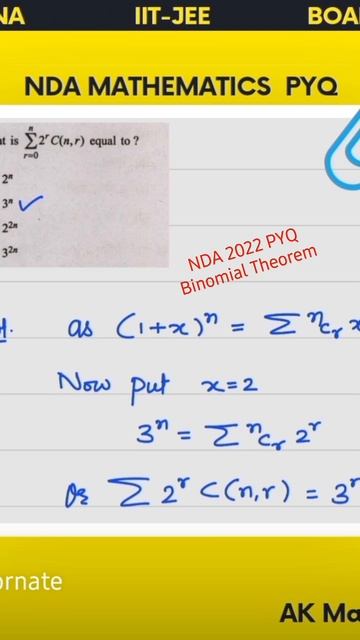 NA IIT-JEE BOA
NDA MATHEMATICS PYQ
t is $\sum_{r=0}^{n} 2^r C(n,r)$ equal to ?
2ⁿ
3ⁿ ✓
2²ⁿ
3²ⁿ
NDA 2022 PYQ
Binomial Theorem
as (1+x)ⁿ = Σ ⁿCᵣ x
Now put x=2
3ⁿ = Σ ⁿCᵣ 2ʳ
Or Σ 2ʳ C(n,r) = 3ⁿ
ornate
AK Ma